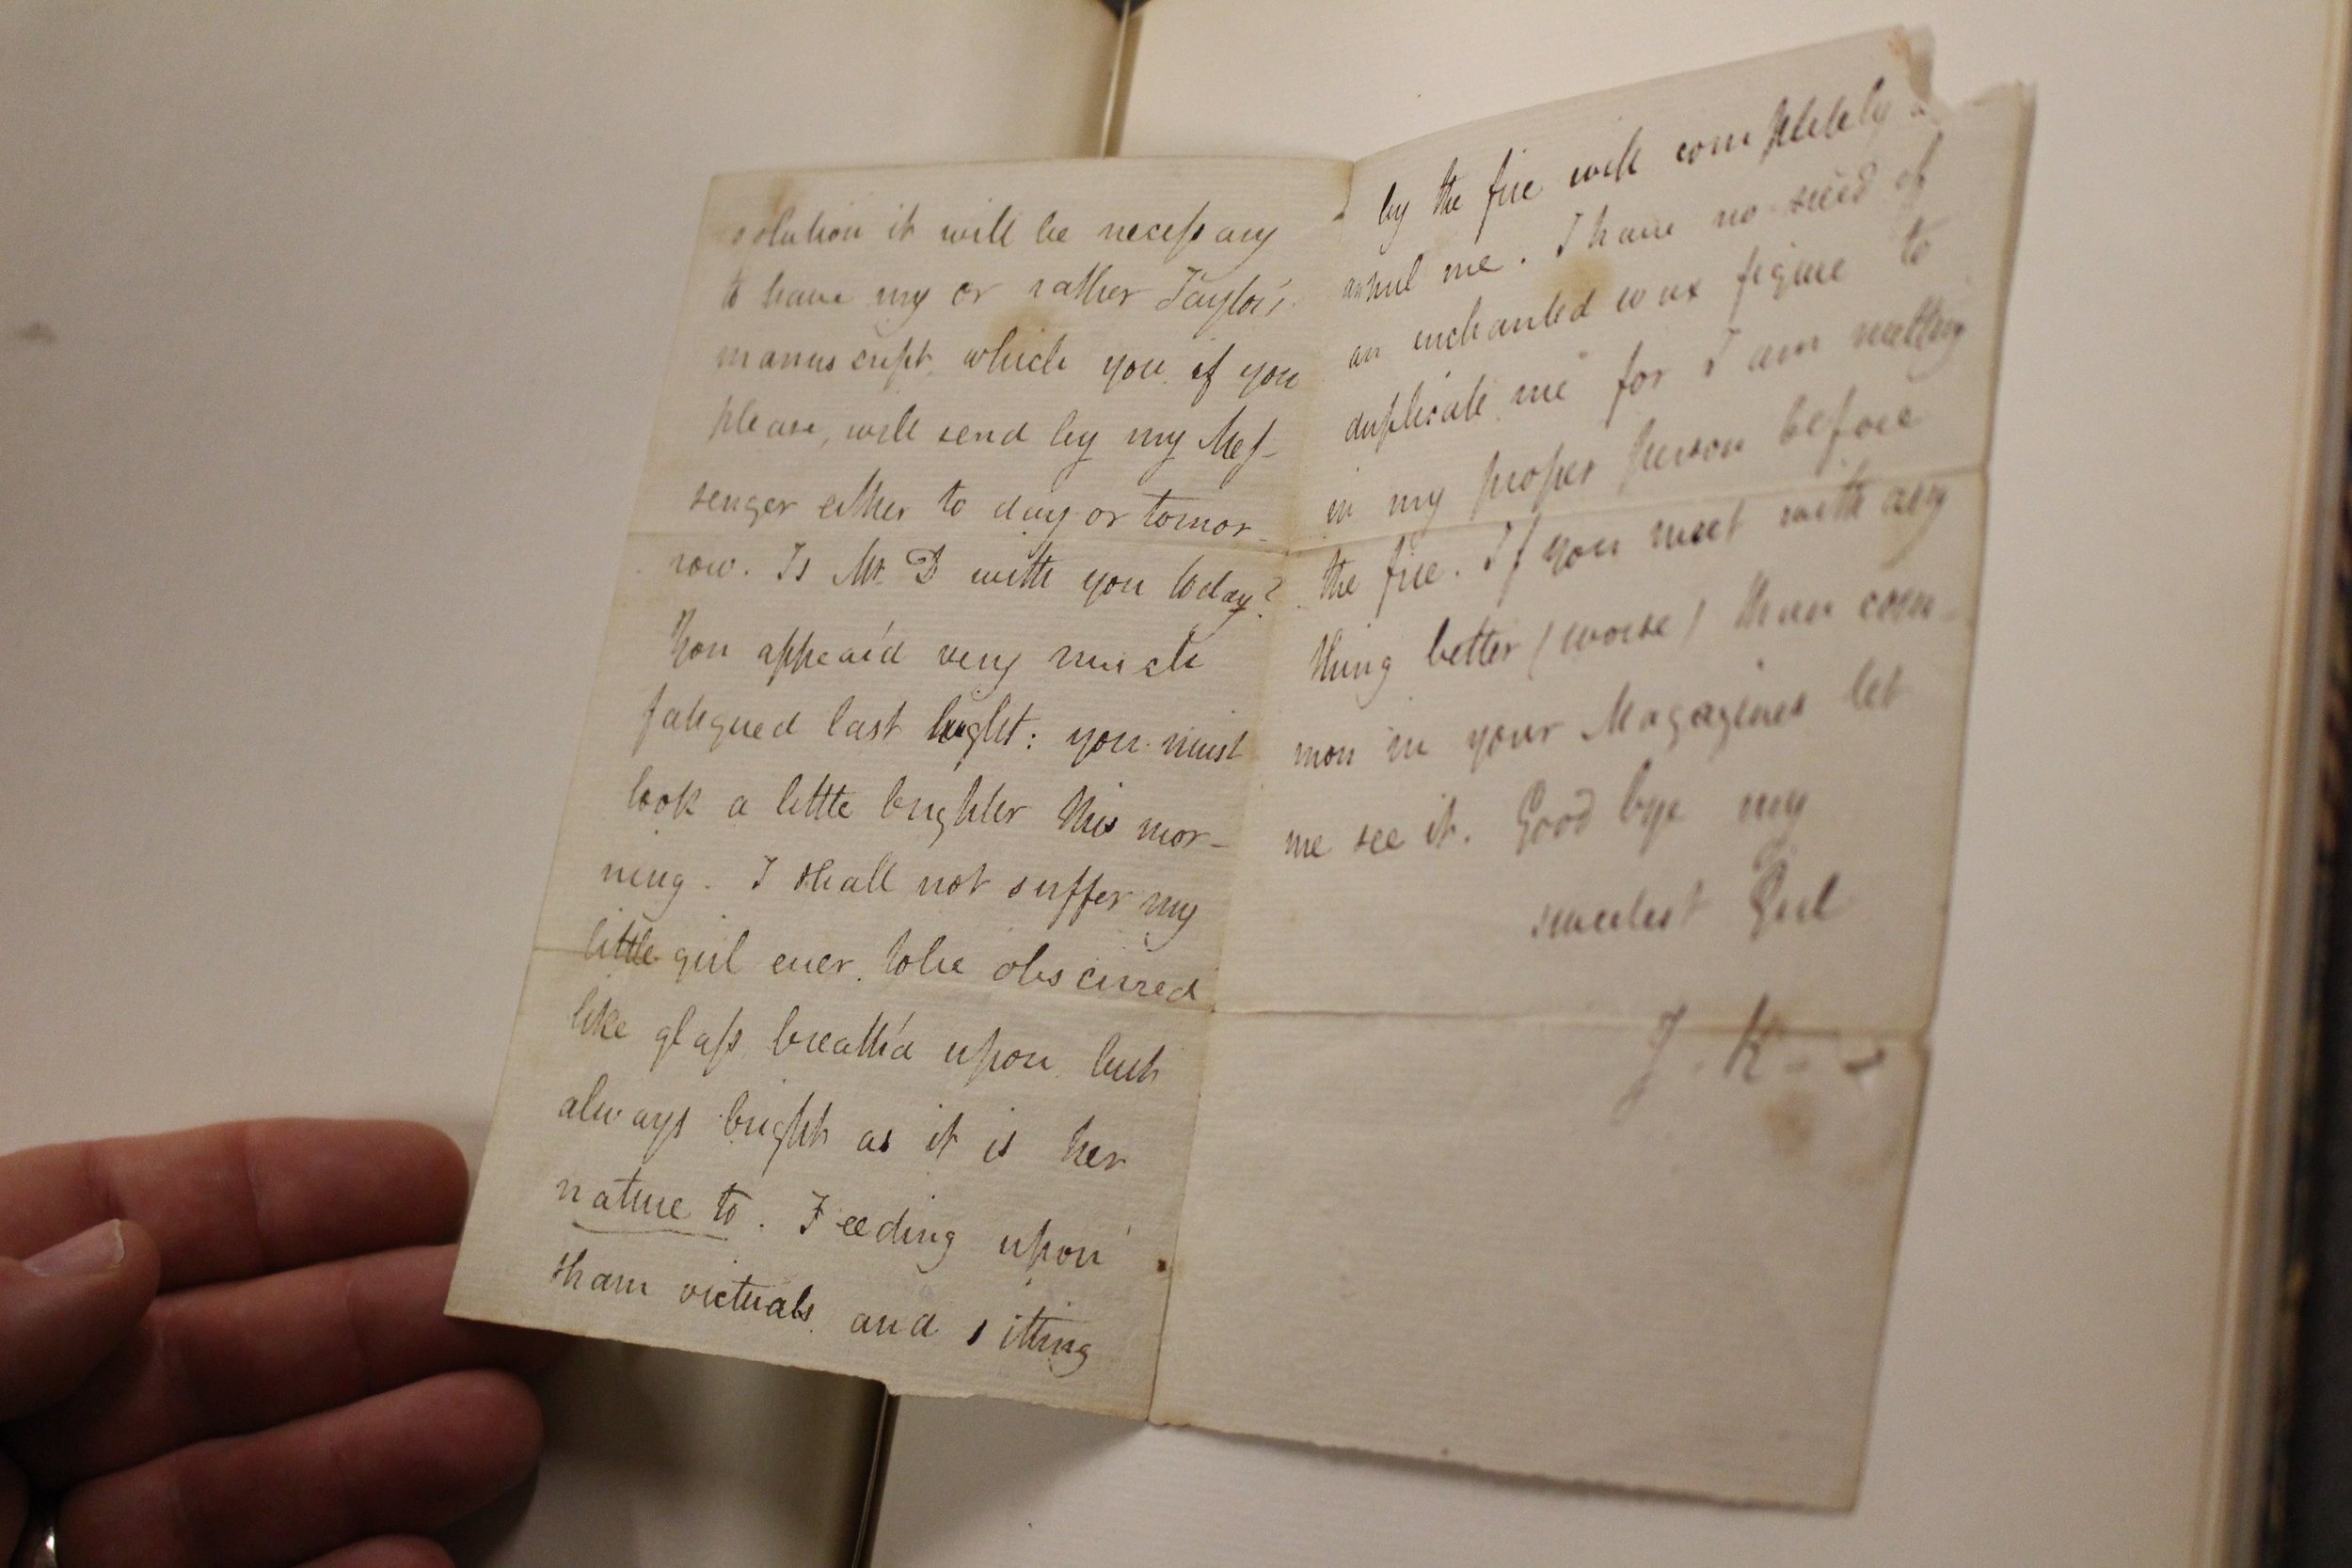 solution it will be necessary
to have my or rather Taylor's
manuscript, which you, if you
please, will send by my Mes-
senger either to day or tomor-
row. Is Mr. D with you today?
You appear'd very much
fatigued last night: you must
look a little brighter this mor-
ning. I shall not suffer my
little girl ever to be obscured
like glass breath'd upon but
always bright as it is her
nature to. Feeding upon
sham victuals and sitting
by the fire will completely
annul me. I have no need of
an enchanted wax figure to
duplicate me for I am melting
in my proper person before
the fire. If you meet with any
thing better (worse) than com-
mon in your Magazines let
me see it. Good bye my
sweetest Girl
J. K--